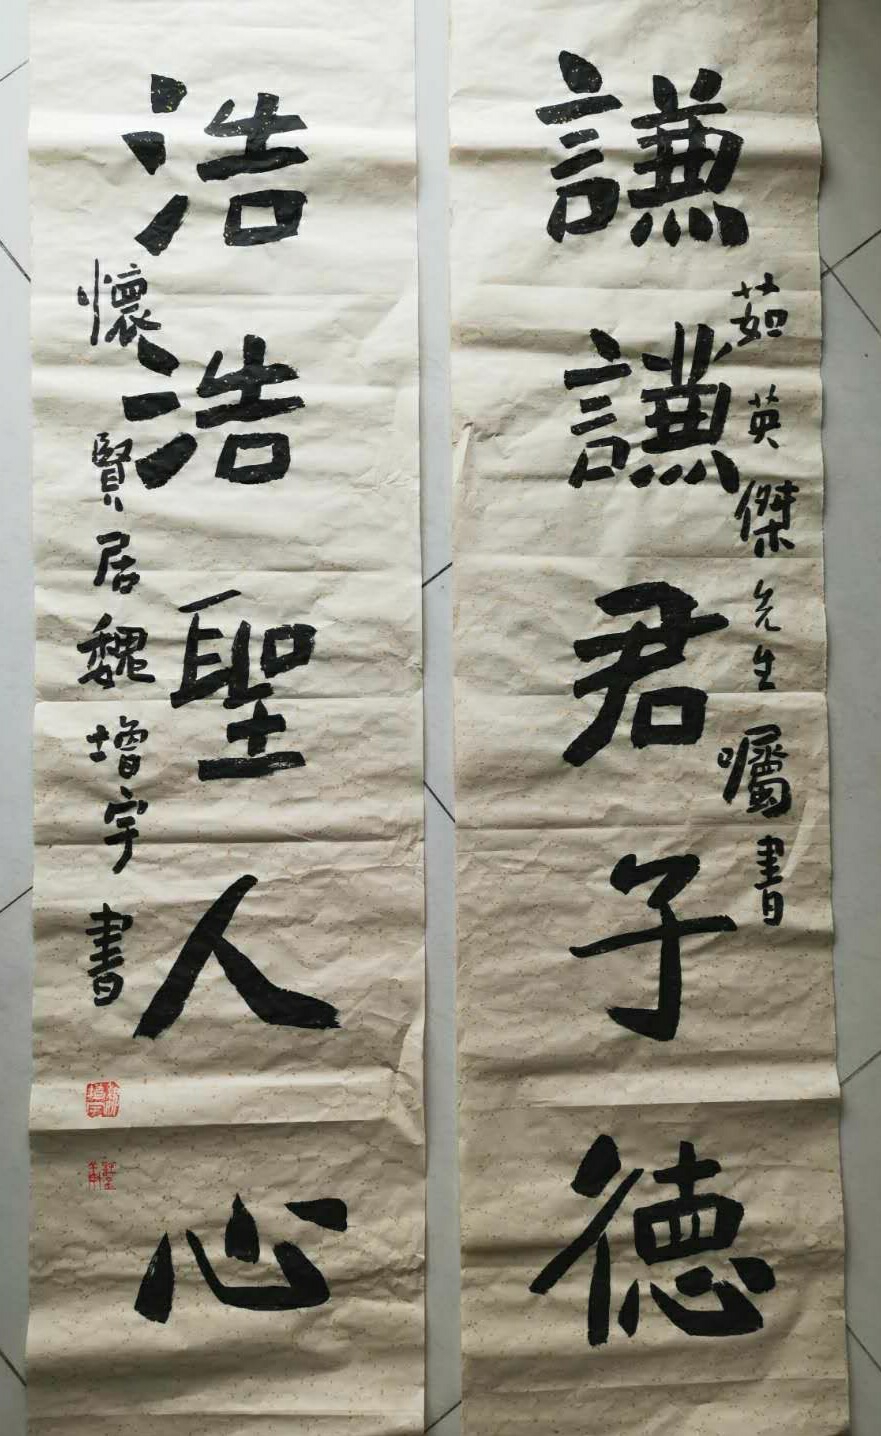 謙謙君子德
茹英傑先生囑書
浩浩聖人心
懷賢居魏增宇書